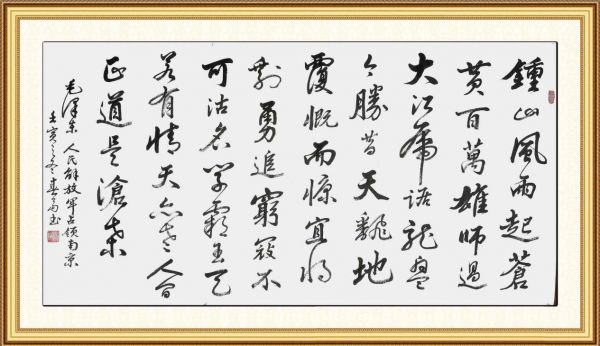 鍾山風雨起蒼
黄百萬雄師過
大江虎踞龍盤
今勝昔天飜地
覆慨而慷宜将
剩勇追窮寇不
可沽名学霸王天
若有情天亦老人间
正道是滄桑
毛泽东 人民解放军占领南京
壬寅之冬春